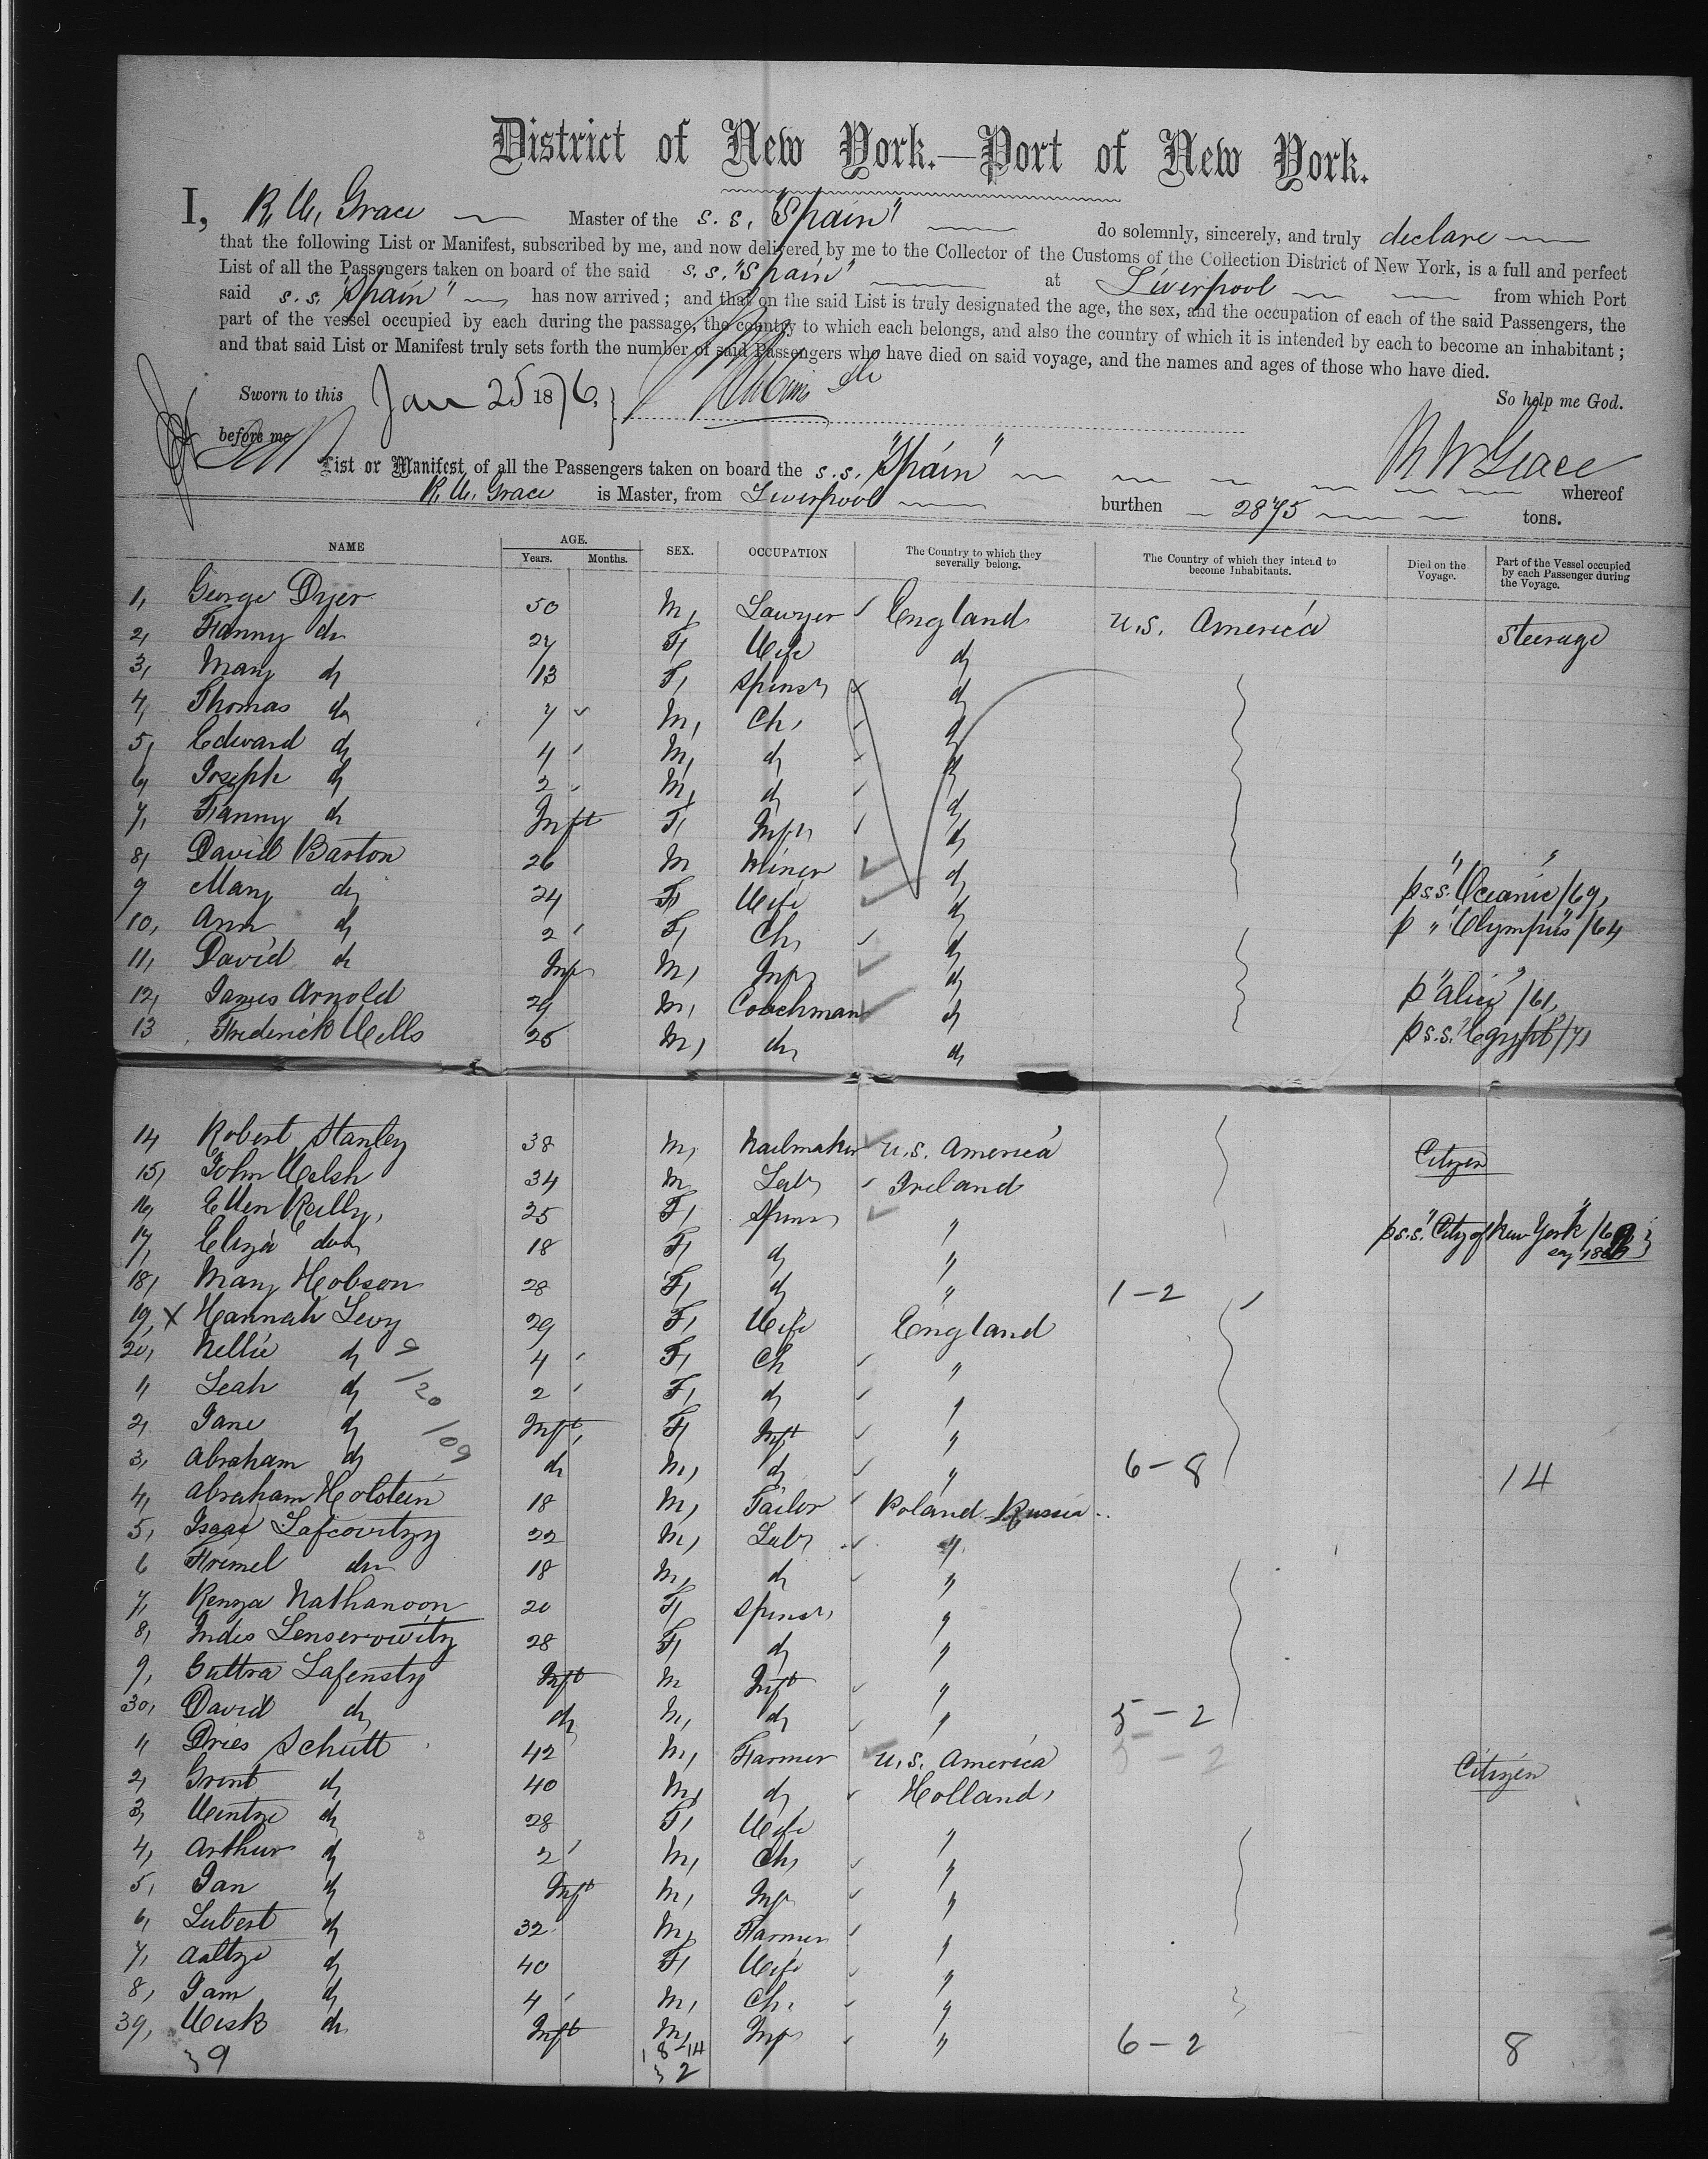 District of New York.—Port of New York.
I, R. W. Grace Master of the s.s. "Spain" do solemnly, sincerely, and truly declare
that the following List or Manifest, subscribed by me, and now delivered by me to the Collector of the Customs of the Collection District of New York, is a full and perfect
List of all the Passengers taken on board of the said s.s. "Spain" at Liverpool from which Port
said s.s. "Spain" has now arrived; and that on the said List is truly designated the age, the sex, and the occupation of each of the said Passengers, the
part of the vessel occupied by each during the passage, the country to which each belongs, and also the country of which it is intended by each to become an inhabitant;
and that said List or Manifest truly sets forth the number of said Passengers who have died on said voyage, and the names and ages of those who have died.
Sworn to this Jan 25 1876, So help me God.
before me R W Grace
List or Manifest of all the Passengers taken on board the s.s. "Spain" whereof
R. W. Grace is Master, from Liverpool burthen 2875 tons.
NAME AGE. Years. Months. SEX. OCCUPATION The Country to which they severally belong. The Country of which they intend to become Inhabitants. Died on the Voyage. Part of the Vessel occupied by each Passenger during the Voyage.
1, George Dyer 50 M, Lawyer England U.S. America Steerage
2, Fanny do 27 F, Wife do
3, Mary do 13 F, Spinsr do
4, Thomas do 7 M, Ch, do
5, Edward do 4 M, do do
6, Joseph do 2 M, do do
7, Fanny do Inft F, Inft do
8, David Barton 26 M Miner do p s.s. "Oceanic" /69,
9 Mary do 24 F, Wife do p " "Olympus" /64
10, Ann do 2 F, Ch, do
11, David do Inf M, Inf do
12, James Arnold 29 M, Coachman do p "Alice" /61,
13 Frederick Wells 25 M, do do p s.s. "Egypt" /71
14 Robert Stanley 38 M, Nailmaker U.S. America Citizen
15, John Welsh 34 M Labr Ireland
16, Ellen Reilly, 25 F, Spinr " p s.s. "City of New York" /69
17, Eliza do 18 F, do "
18, Mary Hobson 28 F, do " 1-2
19, X Hannah Levy 29 F, Wife England
20, Nellie do 4 F, Ch "
1, Leah do 2 F, do "
2, Jane do Inft, F, Inft "
3, Abraham do do M, do " 6-8 14
9/20/09
4, Abraham Holstein 18 M, Tailor Poland Russia
5, Isaac Lafcovitzy 22 M, Labr "
6 Fremel do 18 M, do "
7, Renza Nathanoon 20 F, Spinsr, "
8, Indes Lenserowitz 28 F, do "
9, Guttra Lafensty Inft M Inft "
30, David do do M, do " 5-2
1, Dries Schutt 42 M, Farmer U.S. America 5-2 Citizen
2, Grint do 40 M, do Holland,
3, Wentze do 28 F, Wife "
4, Arthur do 2 M, Ch, "
5, Jan do Inft M, Inf "
6, Lubert do 32 M, Farmer "
7, Aaltze do 40 F, Wife "
8, Jam do 4 M, Ch, "
39, Wesk do Inft M, Inf " 6-2 8
39 18-14
32